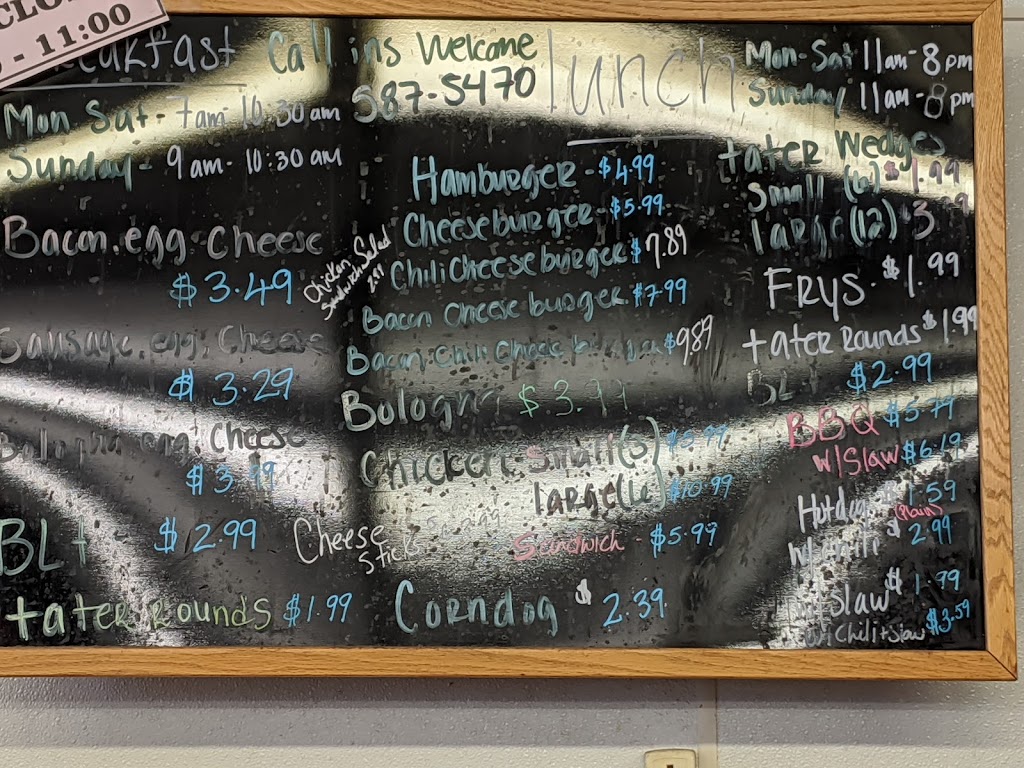 - 11:00
Call ins Welcome
587-5470
Mon-Sat - 7am - 10:30 am
Sunday - 9am - 10:30 am
Bacon. egg. Cheese
$3.49
Sausage. egg. Cheese
$3.29
Bologna. egg. Cheese
$3.99
BLt $2.99
tater rounds $1.99
lunch
Mon-Sat 11am-8pm
Sunday 11am-8pm
Hamburger - $4.99
Cheeseburger - $5.99
Chili Cheeseburger $7.89
Bacon Cheeseburger $7.99
Bacon. Chili Cheese $9.89
Chicken Salad
Sandwich
Bologna $3.99
Chicken Small(3) $6.99
large(6) $10.99
Sandwich - $5.99
Cheese
Sticks
Corndog $2.39
tater Wedges
Small (6) $1.99
large (12) $3
FRYS. $1.99
tater Rounds $1.99
BLt $2.99
BBQ $5.79
w/Slaw $6.19
Hotdog $1.59
(Plain)
w/chili $2.99
Slaw $1.99
Chili+Slaw $3.59